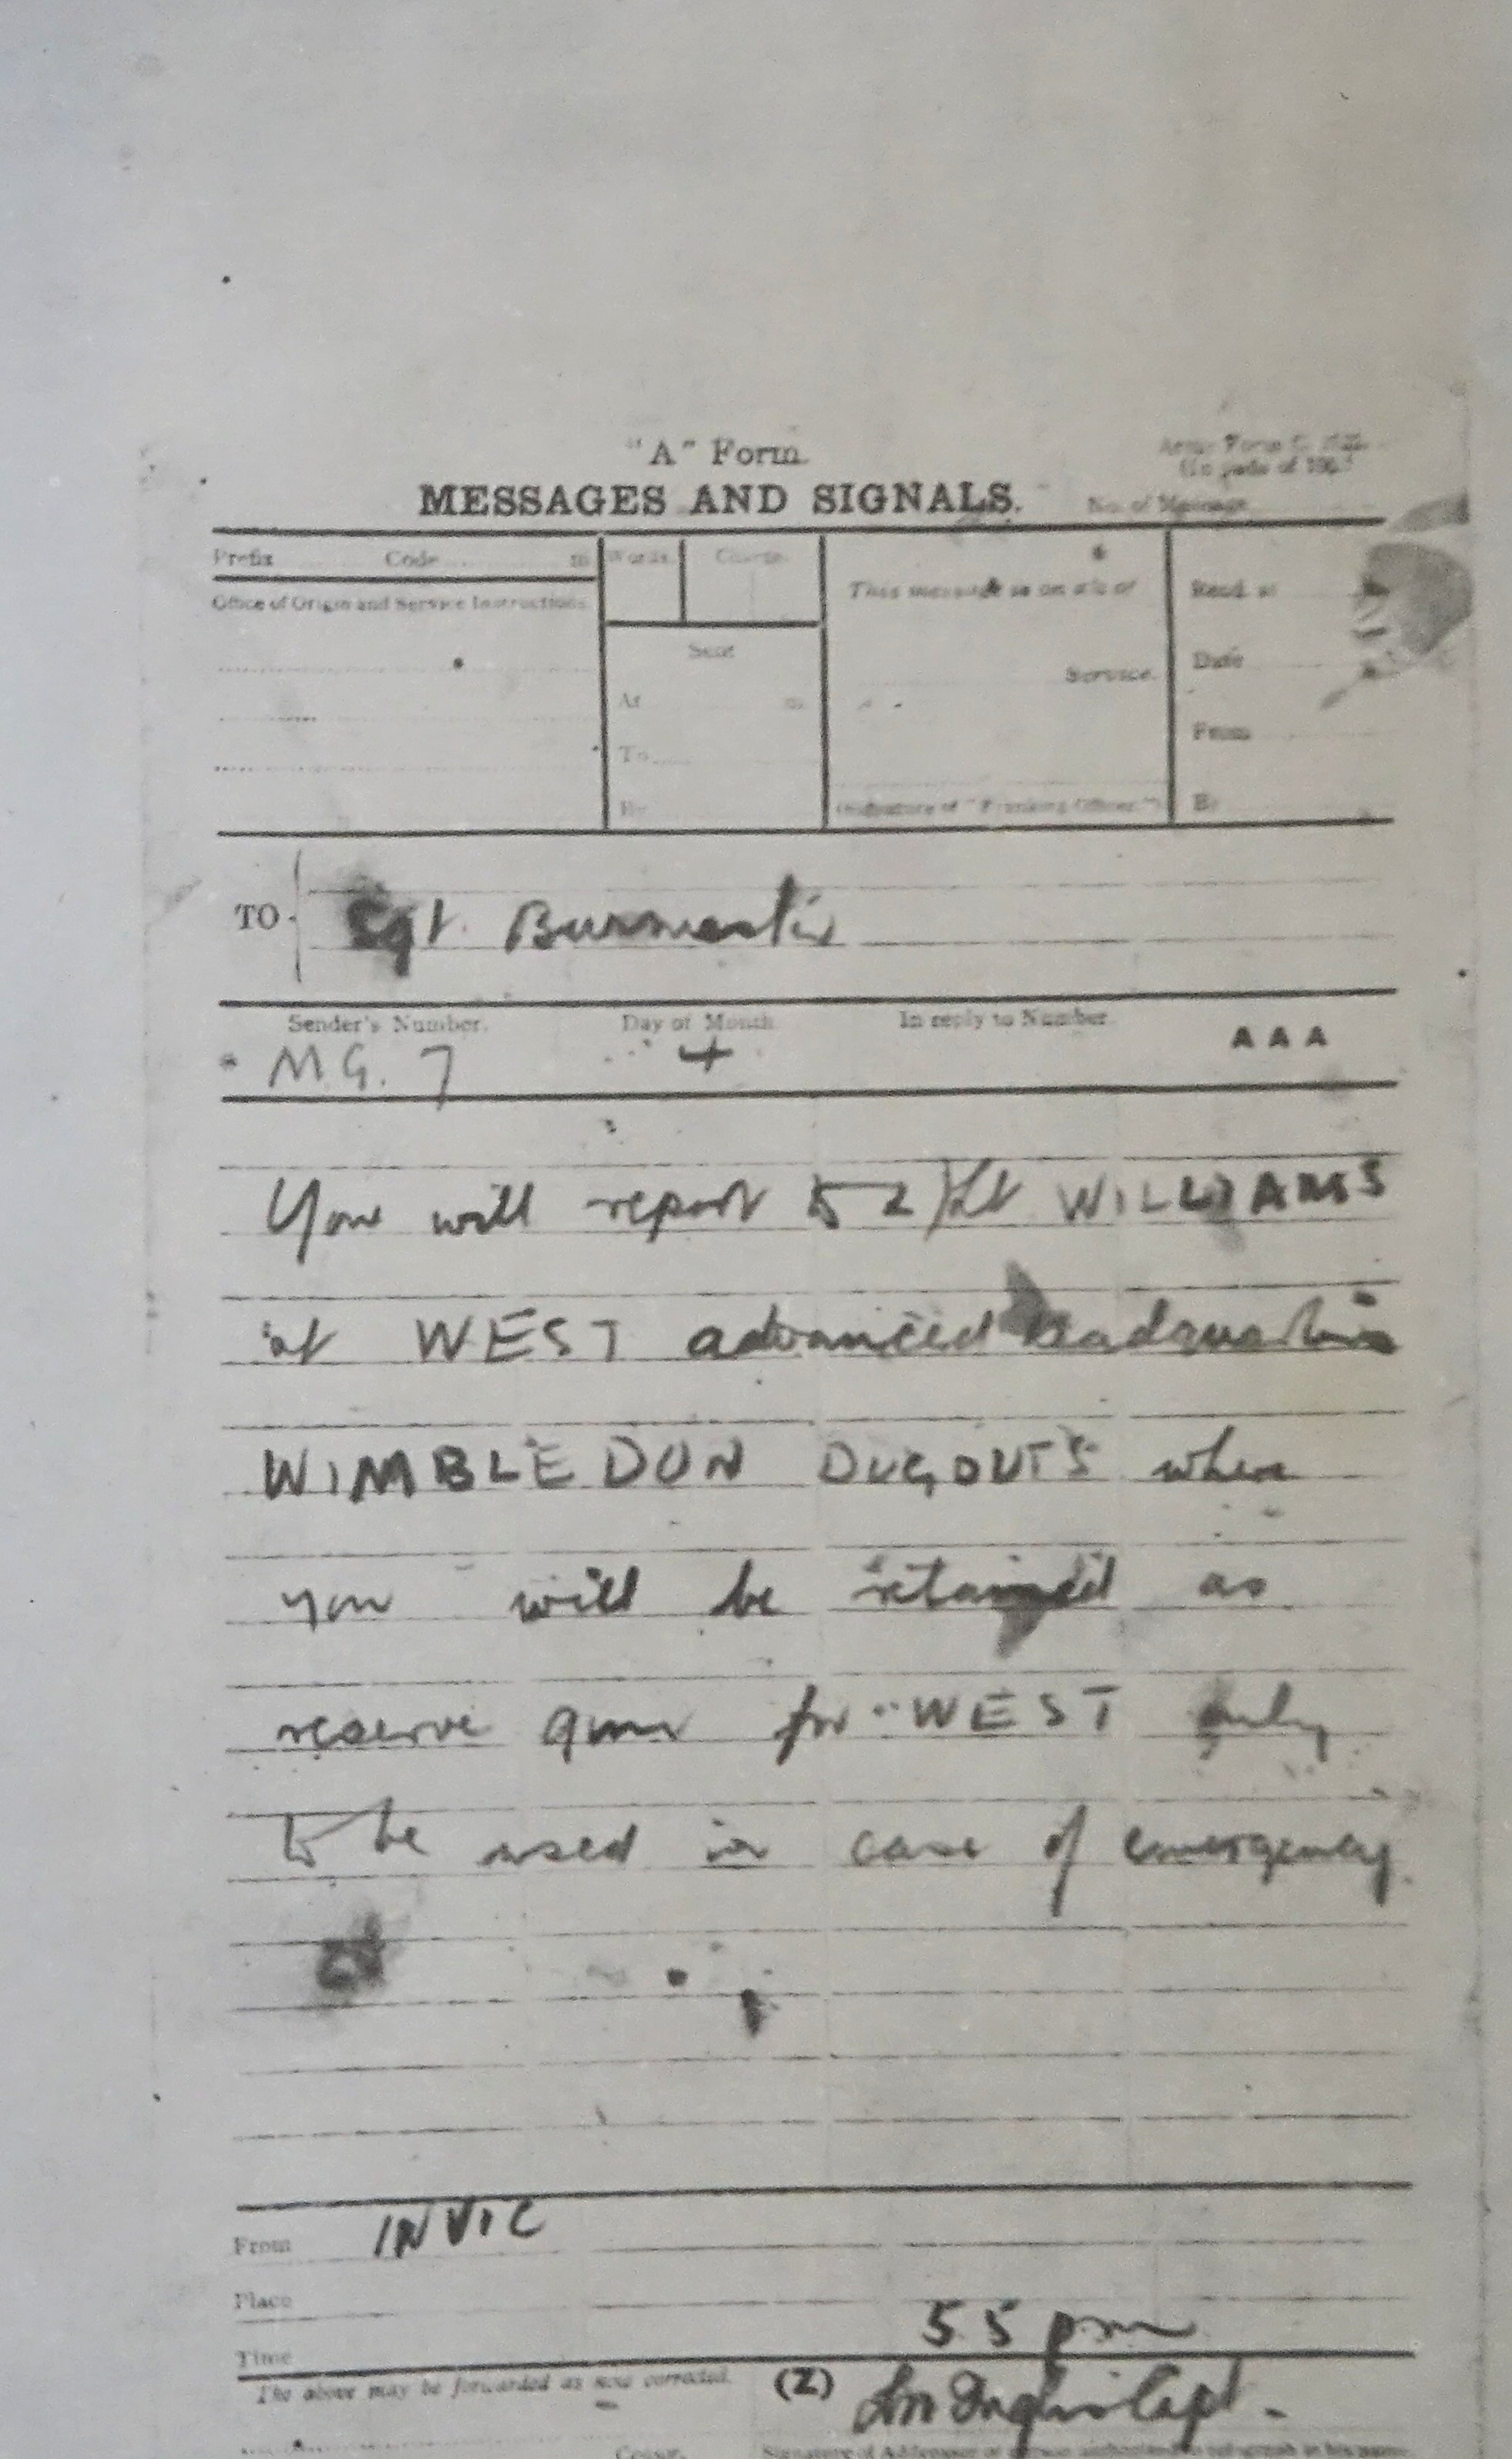 "A" Form.
MESSAGES AND SIGNALS.
No. of Message
Prefix Code m
Words Charge
Office of Origin and Service Instructions.
This message is on a/c of
Recd. at
Sent
Date
Service.
At m
From
To
By
(Signature of "Franking Officer.")
By
TO Sgt. Burmester
Sender's Number. Day of Month In reply to Number. AAA
* M.G. 7 4
You will report to 2/Lt WILLIAMS
at WEST advanced headquarters
WIMBLEDON DUGOUTS where
you will be retained as
reserve gun for WEST only
to be used in case of emergency.
From INVIC
Place
Time 55 pm
The above may be forwarded as now corrected. (Z) Capt.
Censor.